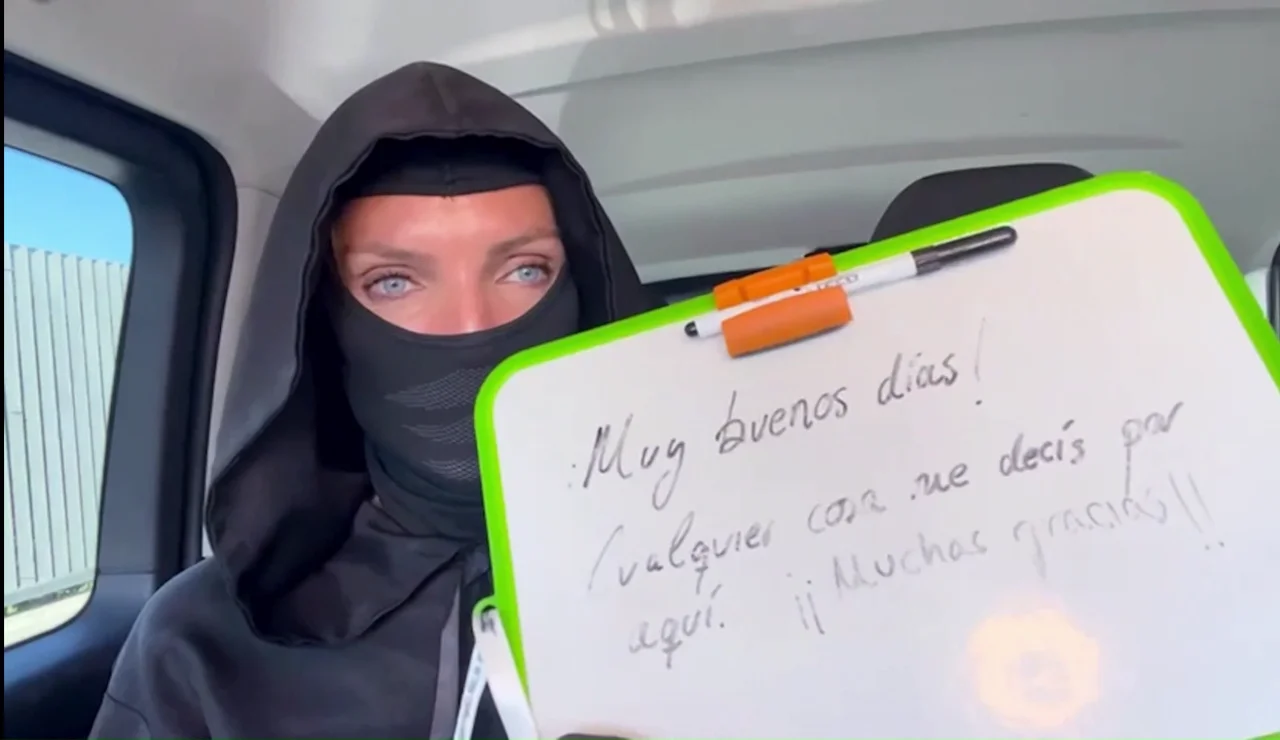 ¡Muy buenos días!
Cualquier cosa me decís por
aquí. ¡¡Muchas gracias!!